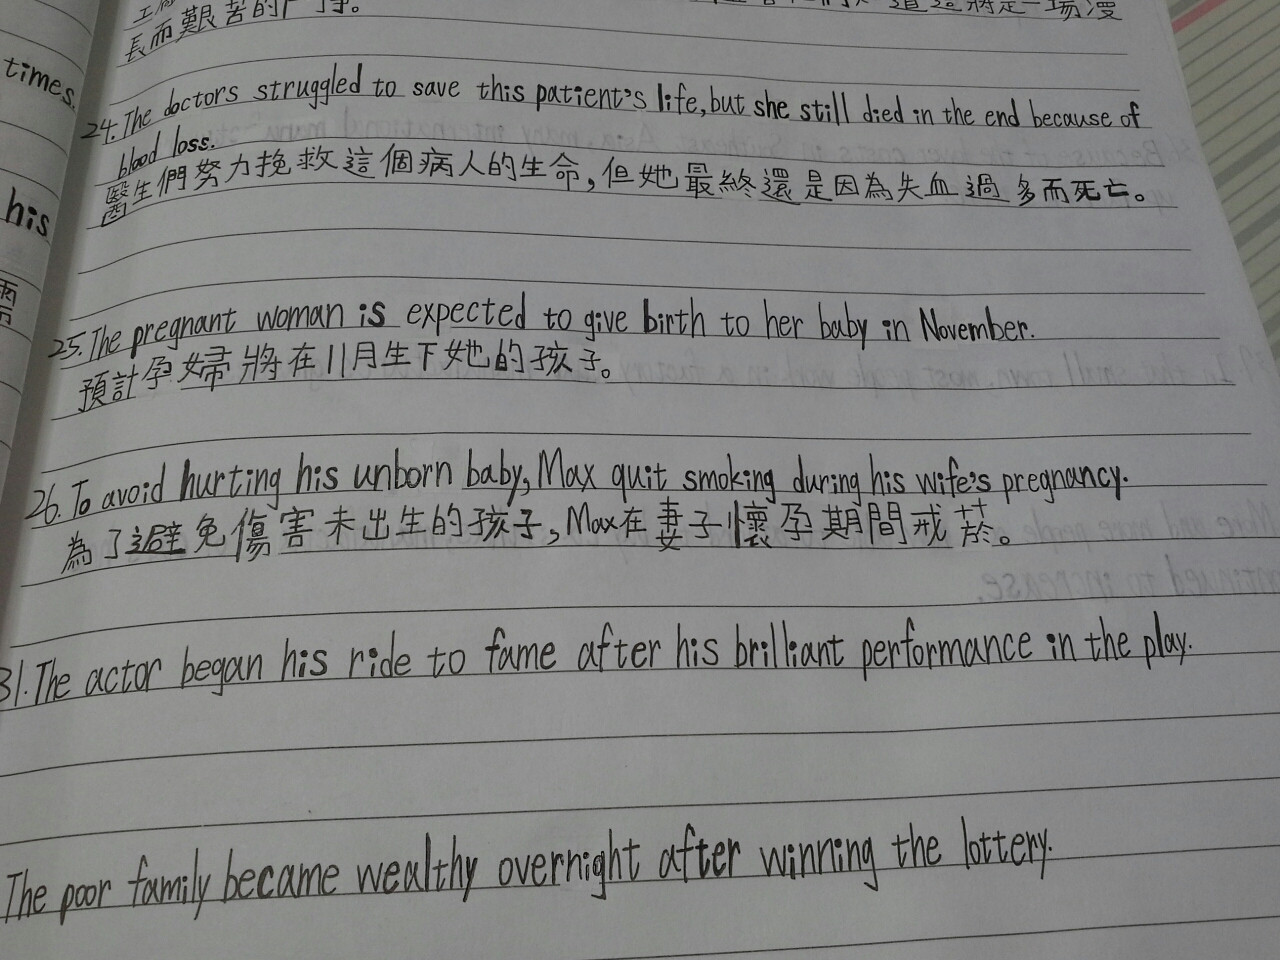 長而艱苦的鬥爭。
times.
his
24. The doctors struggled to save this patient's life, but she still died in the end because of
blood loss.
醫生們努力挽救這個病人的生命,但她最終還是因為失血過多而死亡。
25. The pregnant woman is expected to give birth to her baby in November.
預計孕婦將在11月生下她的孩子。
26. To avoid hurting his unborn baby, Max quit smoking during his wife's pregnancy.
為了避免傷害未出生的孩子,Max在妻子懷孕期間戒菸。
31. The actor began his ride to fame after his brilliant performance in the play.
The poor family became wealthy overnight after winning the lottery.